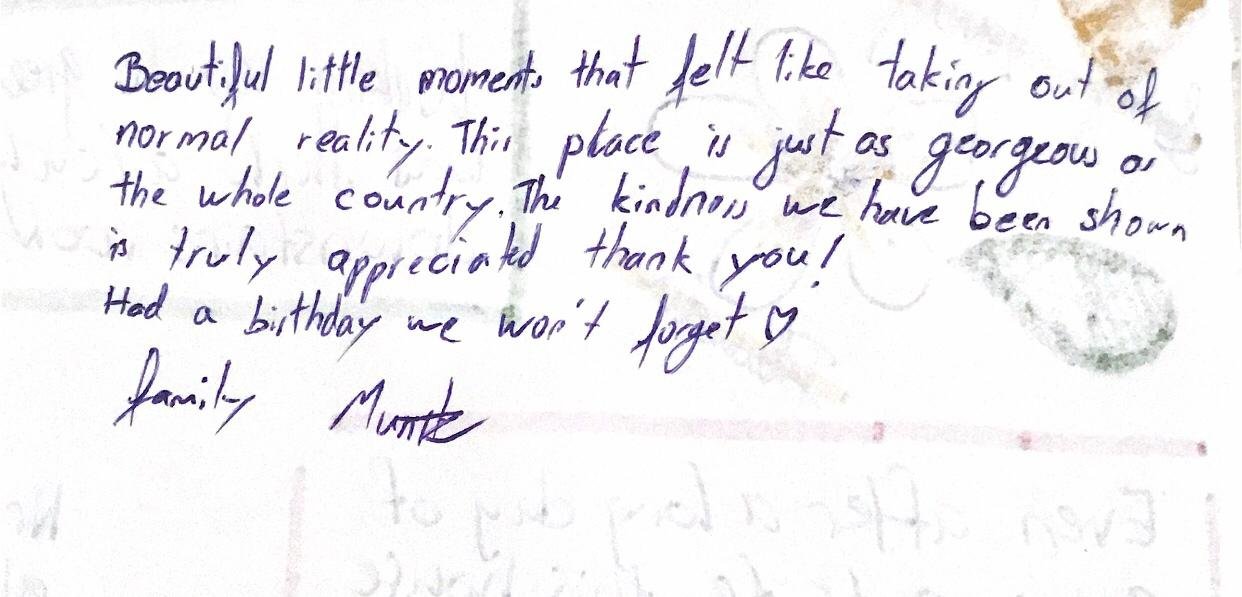 Beautiful little moments that felt like taking out of
normal reality. This place is just as georgeous as
the whole country. The kindness we have been shown
is truly appreciated thank you!
Had a birthday we won't forget ♡
family
Even after a long day of